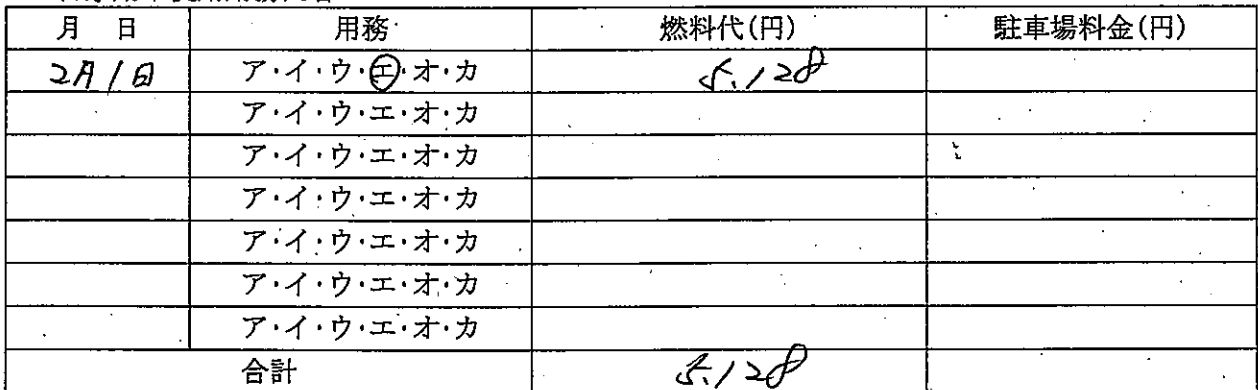 月 日 用務 燃料代(円) 駐車場料金(円)
2月1日 ア・イ・ウ・エ・オ・カ 5.128
ア・イ・ウ・エ・オ・カ
ア・イ・ウ・エ・オ・カ
ア・イ・ウ・エ・オ・カ
ア・イ・ウ・エ・オ・カ
ア・イ・ウ・エ・オ・カ
ア・イ・ウ・エ・オ・カ
合計 5.128